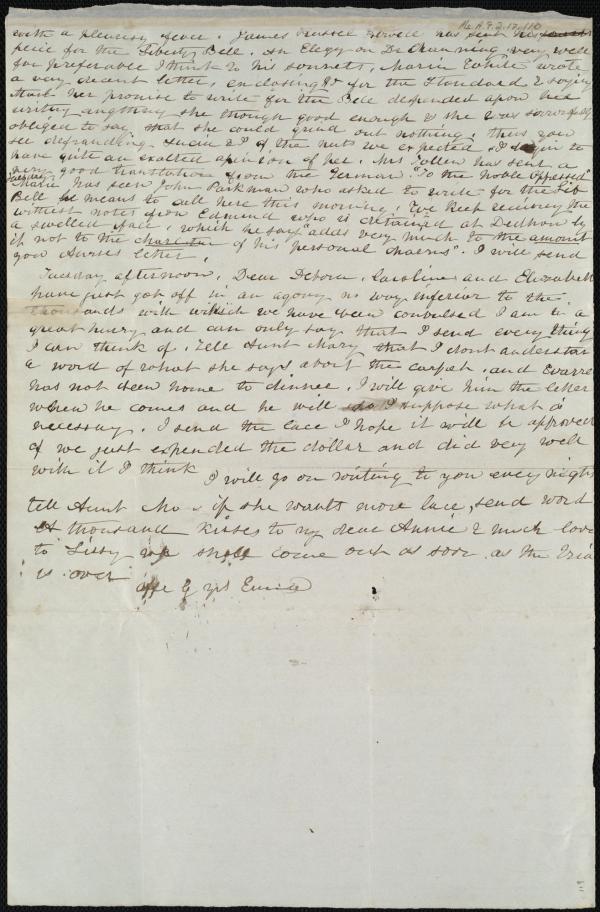 Ms.A.9.2.17,110
with a pleurisy fever. James Russell Lowell has sent his
piece for the Liberty Bell. An Elegy on Dr Channing, very well
far preferable I think to his sonnets, Maria White wrote
a very decent letter, enclosing for the Standard & saying
that her promise to write for the Bell depended upon her
writing anything she though good enough & she was sorrowfully
obliged to say that she could grind out nothing, thus you
see defrauding Lucia & I of the nuts we expected. I begin to
have quite an exalted opinion of her. Mrs Follen has sent a
very good translation from the German. "To the Noble Oppressed"
Maria has seen John Parkman who asked to write for the Lib
Bell & means to call here this morning. We keep receiving the
wittiest notes from Edmund who is retained at Dedham by
a swelled face, which he says "adds very much to the amount
if not to the character of his personal charms". I will send
you Aurses letter.
Tuesday afternoon. Dear Debora, Caroline and Elizabeth
have just got off in an agony no way inferior to the
thousands with which we have been convulsed I am in a
great hurry and can only say that I send every thing
I can think of. Tell Aunt Mary that I dont understan
a word of what she says about the carpet. and
has not been home to dinner. I will give him the letter
when he comes and he will do I suppose what is
necessary. I send the lace I hope it will be approved
of we just expended the dollar and did very well
with it I think
I will go on writing to you every night
tell Aunt if she wants more lace, send word
A thousand kisses to my dear Annie & much love
to Lissy we shall come out as soon as the
is over
aff & yrs Emma